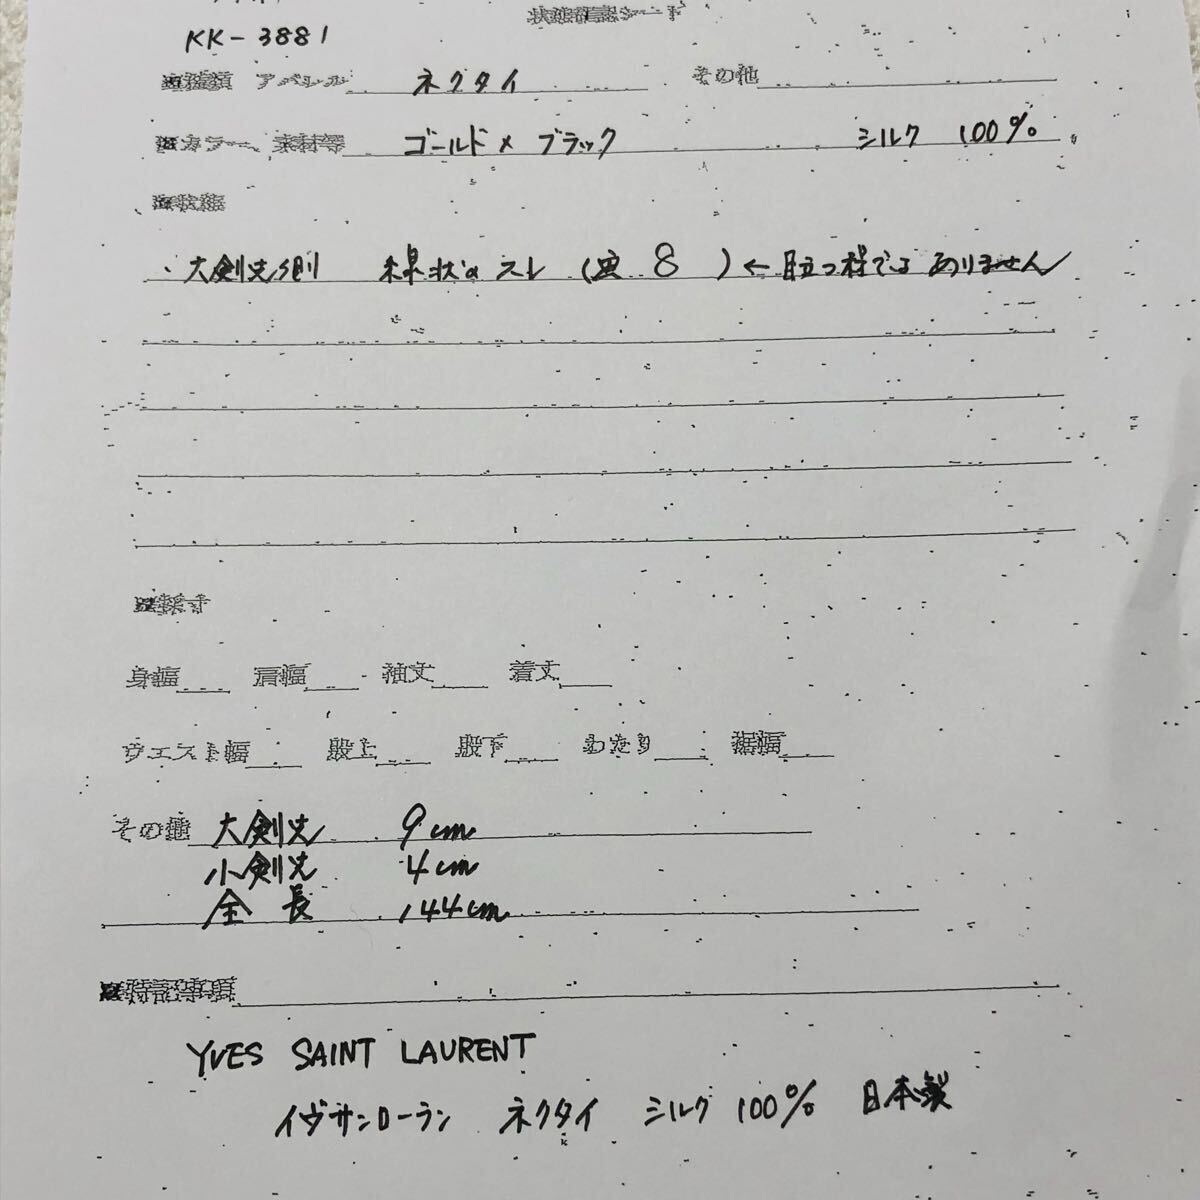 状態確認シート
KK-3881
■種類 アパレル ネクタイ その他
■カラー、素材等 ゴールド×ブラック シルク 100%
■状態
・大剣先側 線状のスレ (写 8 ) ← 目立つ程では ありません
■採寸
身幅 肩幅 袖丈 着丈
ウエスト幅 股上 股下 わたり 裾幅
その他 大剣先 9cm
小剣先 4cm
全長 144cm
■特記事項
YVES SAINT LAURENT
イヴサンローラン ネクタイ シルク 100% 日本製